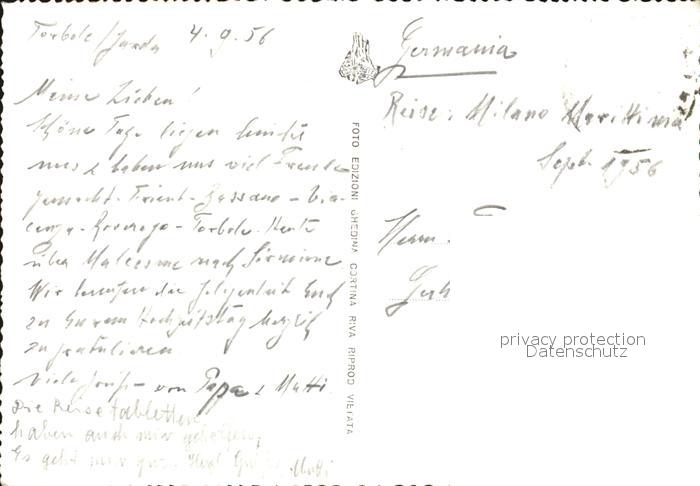 Torbole/Garda 4.9.56
Meine Lieben!
Schöne Tage liegen hinter
uns & haben uns viel Freude
gemacht. Trient - Bassano - Via-
cenza - Rovereto - Torbole. Heute
über Malcesine nach Sirmione
Wir benutzen die Gelegenheit Euch
zu Eurem Hochzeitstag herzlich
zu gratulieren
Viele Grüße von Papa & Mutti
Die Reisetabletten
haben auch mir geholfen,
Es geht mir gut. Mutti
FOTO EDIZIONI GHEDINA CORTINA RIVA RIPROD VIETATA
Germania
Reise: Milano Marittima
Sept. 1956
Herrn
Gerh
privacy protection
Datenschutz